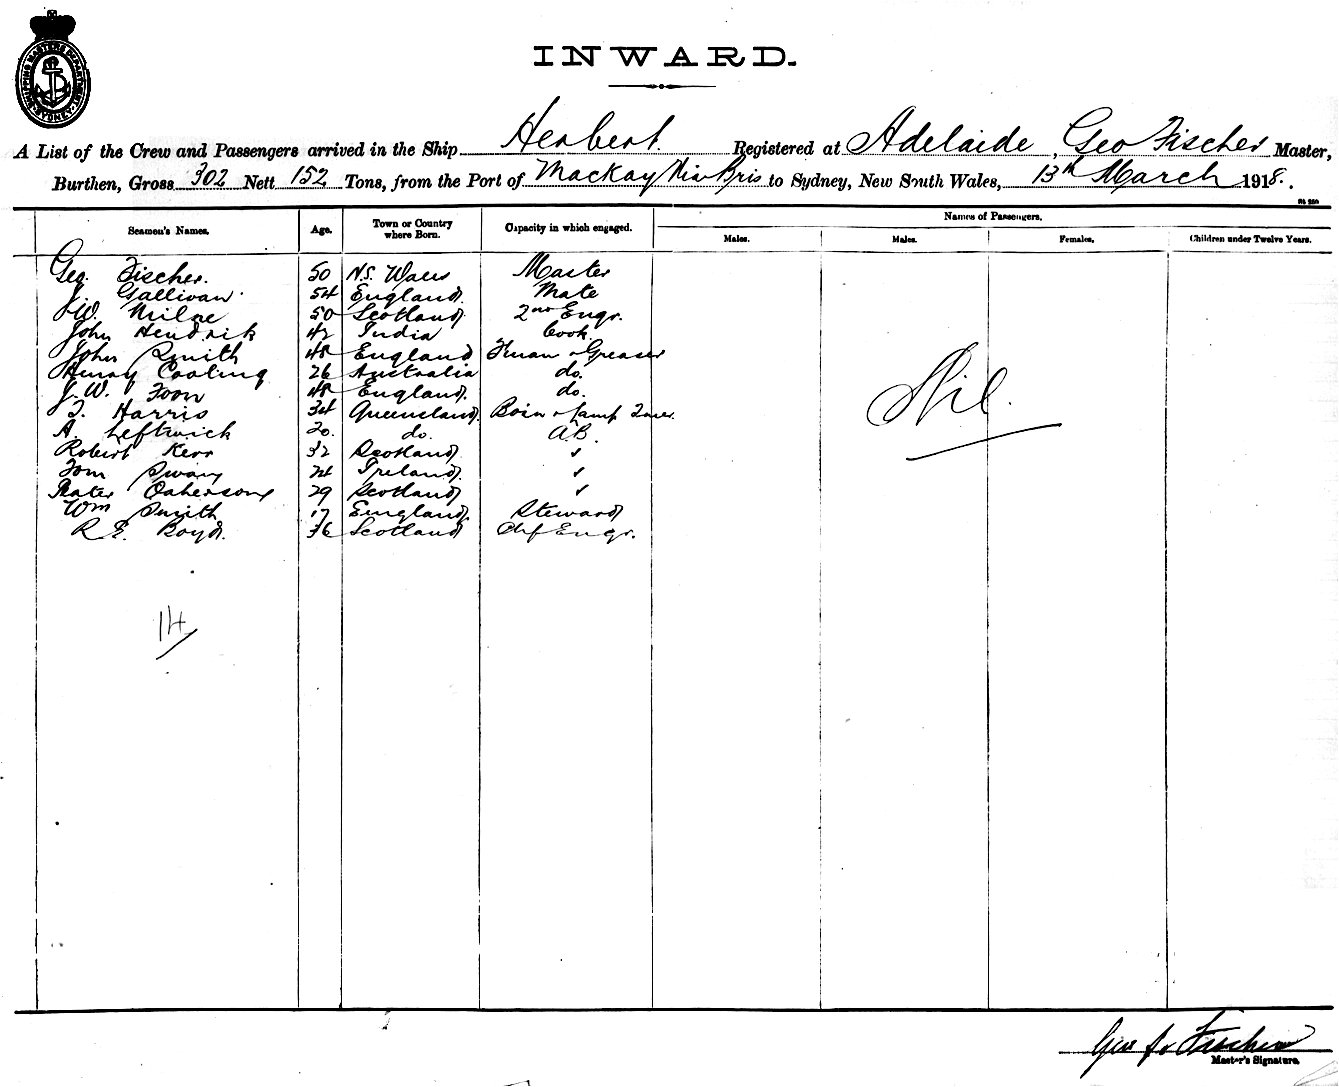 SHIPPING MASTER'S DEPARTMENT SYDNEY
INWARD.
A List of the Crew and Passengers arrived in the Ship Herbert. Registered at Adelaide, Geo Fischer Master,
Burthen, Gross 302 Nett 152 Tons, from the Port of Mackay Via Bris to Sydney, New South Wales, 13th March 1918.
Names of Passengers.
Seamen's Names. Age. Town or Country where Born. Capacity in which engaged. Males. Males. Females. Children under Twelve Years.
Geo. Fischer. 50 N.S. Wales Master
J. Gallivan. 54 England. Mate
W. Milne 50 Scotland 2nd Engr.
John Hendrik 42 India Cook
John Smith 48 England Fman & Greaser
Henry Cooling 26 Australia do.
J. W. Toon 48 England. do.
T. Harris 34 Queensland. Bosn & Lamp
A. Leftwick 20. do. AB.
Robert Kerr 32 Scotland "
Tom Swan 24 Ireland. "
29 Scotland "
Wm Smith 17 England Steward
R. E. Boyd. 36 Scotland Chf Engr.
Nil.
14
Master's Signature.